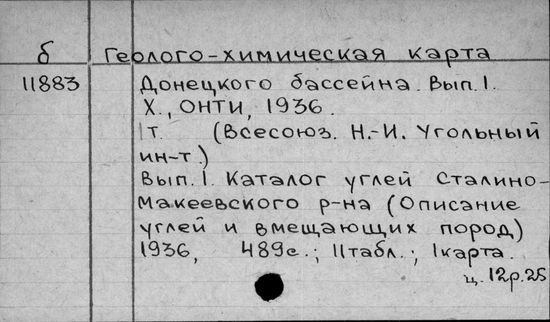 б Геолого-химическая карта
11883 Донецкого бассейна. Вып. 1.
Х., ОНТИ, 1936.
1т. (Всесоюз. Н.-И. Угольный
ин-т.)
Вып. 1. Каталог углей Сталино-
Макеевского р-на (Описание
углей и вмещающих пород)
1936, 489с.; 11табл.; 1карта.
ц. 12р.25